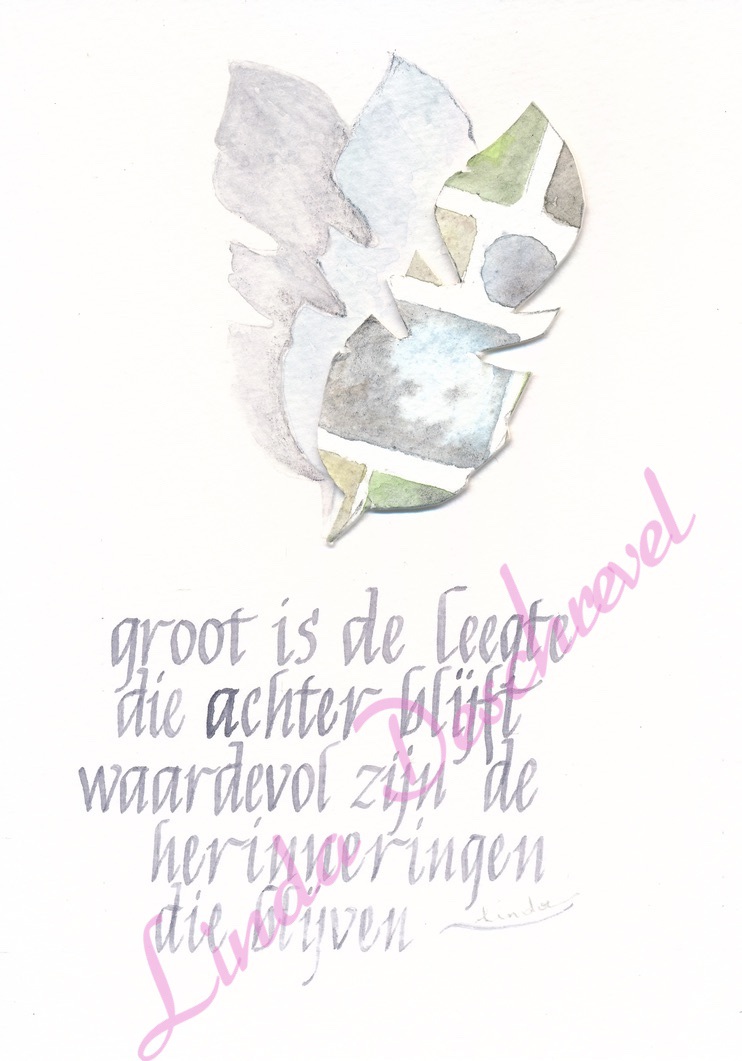 groot is de leegte
die achter blijft
waardevol zijn de
herinneringen
die blijven
Linda
Linda Deschrevel